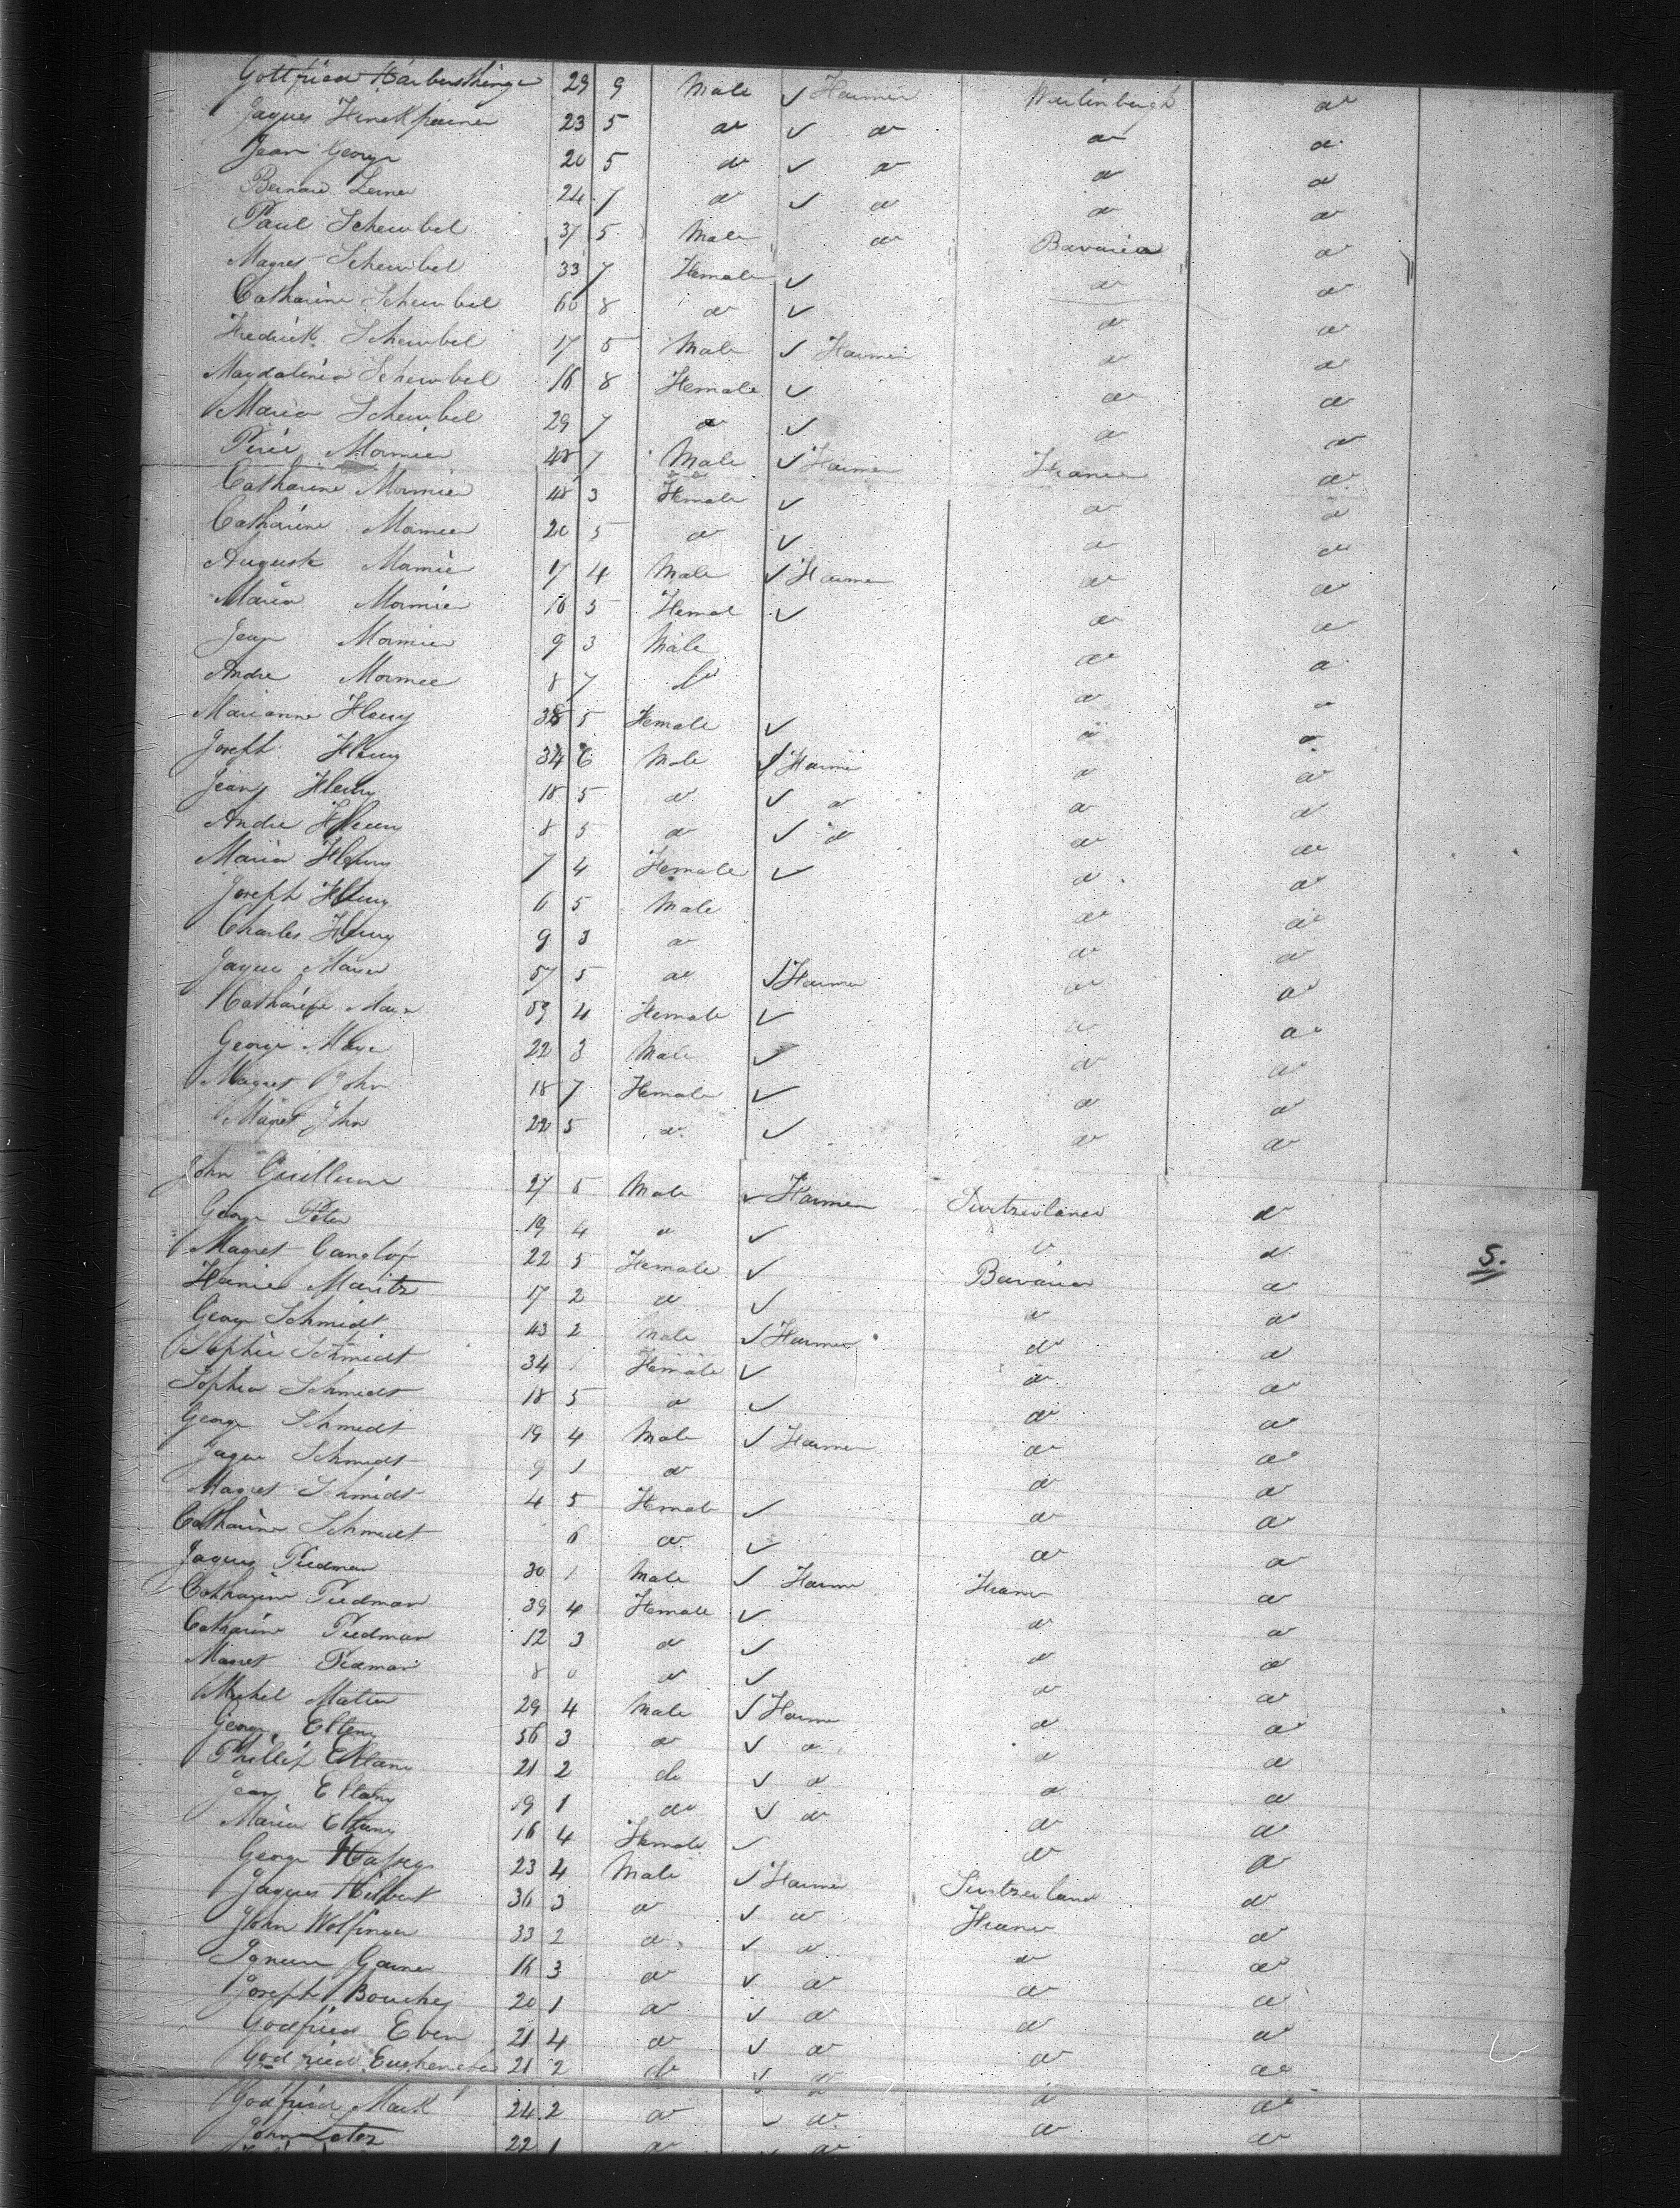 Gottfried 29 9 Male ✓ Farmer Wurtenbergh do
Jaques 23 5 do ✓ do do do
Jean George 20 5 do ✓ do do do
Bernard Lerner 24 7 do ✓ do do do
Paul Scheubel 37 5 Male do Bavaria do
Magret Scheubel 33 7 Female ✓ do do
Catharine Scheubel 60 8 do ✓ do do
Fredrick Scheubel 17 5 Male ✓ Farmer do do
Magdalena Scheubel 16 8 Female ✓ do do
Maria Scheubel 29 7 do ✓ do do
Pirie Mormier 48 7 Male ✓ Farmer France do
Catharine Mormier 48 3 Female ✓ do do
Catharine Mormier 20 5 do ✓ do do
August Mormier 17 4 Male ✓ Farmer do do
Maria Mormier 10 5 Femal ✓ do do
Jean Mormier 9 3 Male do do
Andre Mormier 8 7 do do do
Marianne Fleury 38 5 Female ✓ do do
Joseph Fleury 34 6 Male ✓ Farmer do do
Jean Fleury 18 5 do ✓ do do do
Andre Fleury 8 5 do ✓ do do do
Maria Fleury 7 4 Female ✓ do do
Joseph Fleury 6 5 Male do do
Charles Fleury 9 3 do do do
Jaque Mayer 57 5 do ✓ Farmer do do
Catharine Mayer 59 4 Female ✓ do do
George Mayer 22 3 Male ✓ do do
Magret John 18 7 Female ✓ do do
Magret John 22 5 do ✓ do do
John Guillaume 27 5 Male ✓ Farmer Switzerland do
George Peter 19 4 do ✓ do do
Magret Ganglof 22 5 Female ✓ Bavaria do 5.
Maritz 17 2 do ✓ do do
George Schmidt 43 2 Male ✓ Farmer do do
Sophie Schmidt 34 1 Female ✓ do do
Sophia Schmidt 18 5 do ✓ do do
George Schmidt 19 4 Male ✓ Farmer do do
Jaque Schmidt 9 1 do do do
Magret Schmidt 4 5 Female ✓ do do
Catharine Schmidt 6 do ✓ do do
Jaques Piedman 30 1 Male ✓ Farmer France do
Catharine Piedman 39 4 Female ✓ do do
Catharine Piedman 12 3 do ✓ do do
Piedman 8 0 do ✓ do do
Michel Matter 29 4 Male ✓ Farmer do do
George 56 3 do ✓ do do do
Phillip 21 2 do ✓ do do do
Jean 19 1 do ✓ do do do
Maria 16 4 Female ✓ do do
George 23 4 Male ✓ Farmer Switzerland do
Jaques Hilbert 36 3 do ✓ do France do
John Wolfinger 33 2 do ✓ do do do
Garner 16 3 do ✓ do do do
Joseph Bouchey 20 1 do ✓ do do do
Godfried Eben 21 4 do ✓ do do do
Godfried 21 2 do ✓ do do do
Godfried Mack 24 2 do ✓ do do do
John 22 1 do do do